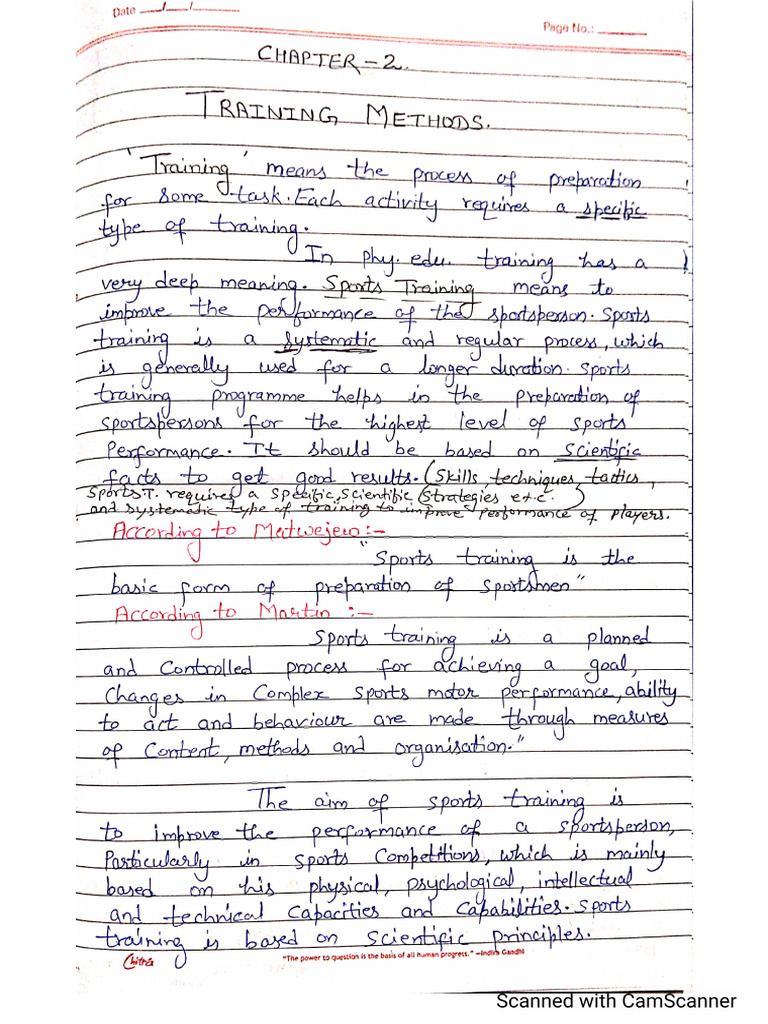 Date __/__/____
Page No.: ______
CHAPTER - 2.
TRAINING METHODS.
'Training' means the process of preparation
for some task. Each activity requires a specific
type of training.
In phy. edu. training has a
very deep meaning. Sports Training means to
improve the performance of the sportsperson. Sports
training is a systematic and regular process, which
is generally used for a longer duration. Sports
training programme helps in the preparation of
sportspersons for the highest level of sports
Performance. It should be based on scientific
facts to get good results. (Skills, techniques, tactics,
Sports T. requires a specific, scientific strategies etc.)
and systematic type of training to improve performance of players.
According to Matwejew :-
"Sports training is the
basic form of preparation of sportsmen"
According to Martin :-
Sports training is a planned
and Controlled process for achieving a goal,
Changes in Complex sports motor performance, ability
to act and behaviour are made through measures
of Content, methods and organisation."
The aim of sports training is
to improve the performance of a sportsperson,
Particularly in sports Competitions, which is mainly
based on his physical, psychological, intellectual
and technical Capacities and Capabilities. Sports
training is based on Scientific principles.
Chitra
"The power to question is the basis of all human progress." –Indira Gandhi
Scanned with CamScanner